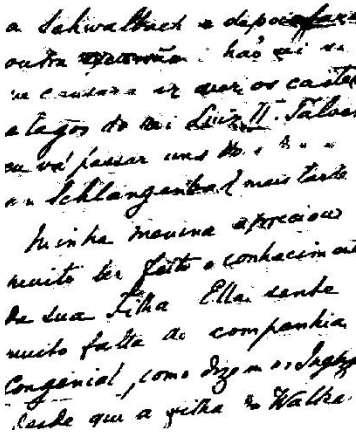 a Schwalbach e depois
outra não sei se
ir ver os castel
e lagos do rei Luiz II. Talvez
eu vá passar uns
em Schlangenbad mais tarde
Minha menina apreciou
muito ter feito o conhecim
de sua Filha Ella sente
muito falta de companhia
Congenial, como dizem os Ingl
desde que a filha